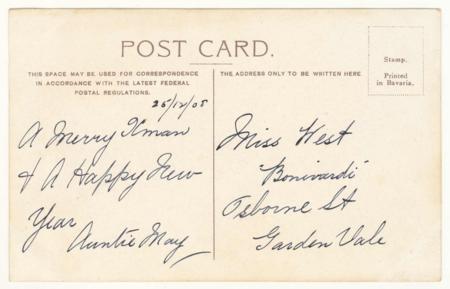 POST CARD.
THIS SPACE MAY BE USED FOR CORRESPONDENCE
IN ACCORDANCE WITH THE LATEST FEDERAL
POSTAL REGULATIONS.
THE ADDRESS ONLY TO BE WRITTEN HERE
Stamp.
Printed
in Bavaria.
25/12/08
A Merry Xmas
& A Happy New
Year
Auntie May
Miss West
"Bonivardi"
Osborne St
Garden Vale